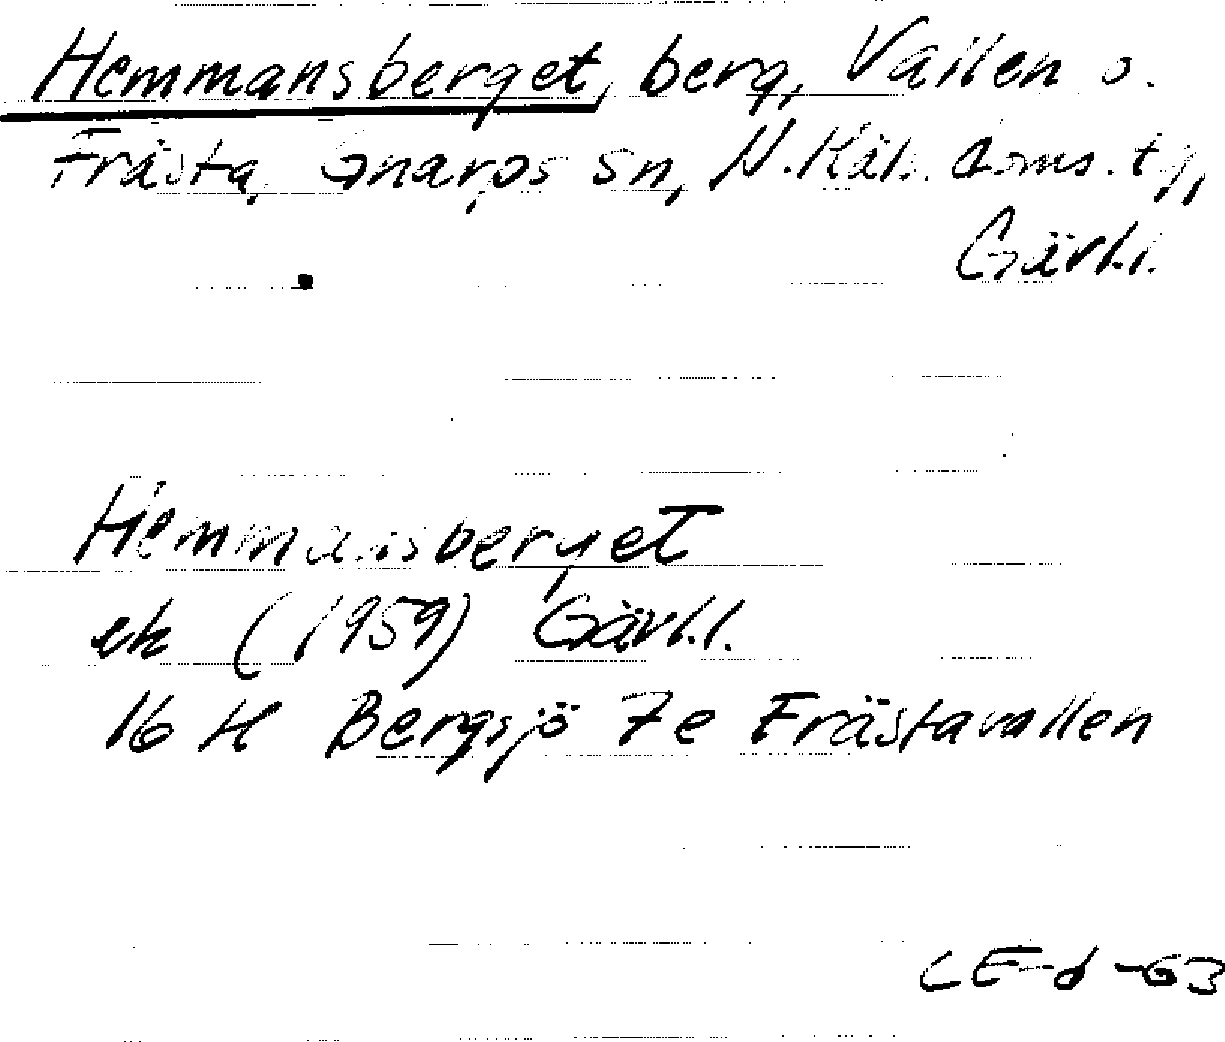 Hemmansberget, berg, Vallen o.
Frästa, Gnarps sn, N. Häls. doms. tg,
Gävl.l.
Hemmansberget
ek (1959) Gävl.l.
16 H Bergsjö 7e Frästavallen
CE-d -63